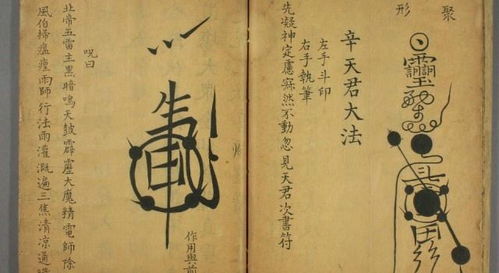 聚形
辛天君大法
左手斗印
右手執筆
先凝神定慮寂然不動忽見天君次書符
作用與前
咒曰
北帝五雷主黑暗鳴天皷霹靂大魔精電師除
風伯掃瘟㾮雨師行法雨灌溉遍三焦清凉通